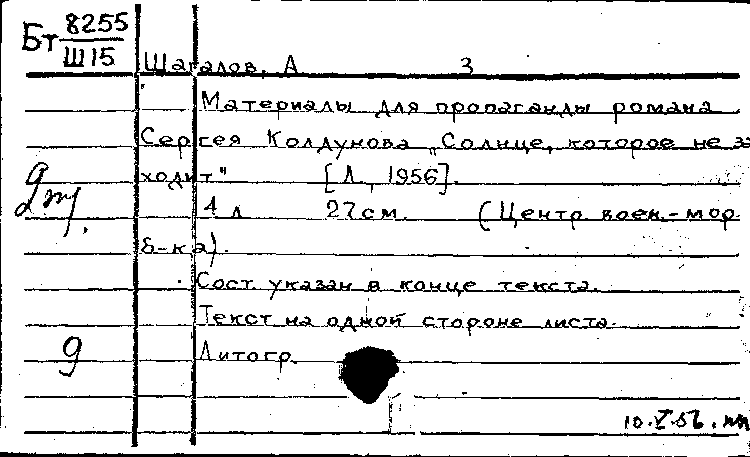 Бт 8255
Ш15
Шагалов, А 3
Материалы для пропаганды романа
Сергея Колдунова „Солнце, которое не за
ходит" [Л, 1956].
4 л 27 см. (Центр воен.-мор.
б-ка).
Сост указан в конце текста.
Текст на одной стороне листа.
Литогр.
9
10.V.56.